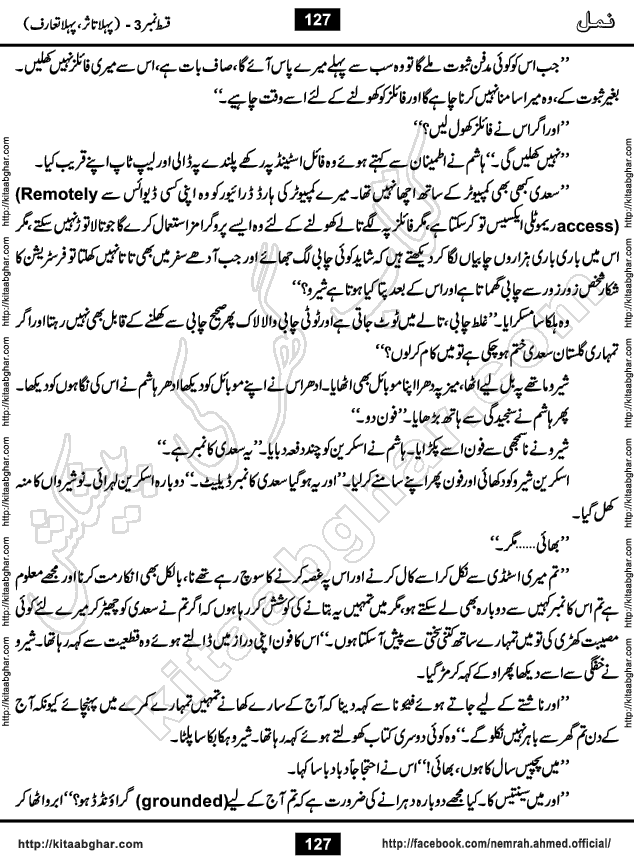 نمل
127
قسط نمبر 3 - (پہلا تاثر، پہلا تعارف)
’’جب اس کو کوئی مدفن ثبوت ملے گا تو وہ سب سے پہلے میرے پاس آئے گا، صاف بات ہے، اس سے میری فائلز نہیں کھلیں۔
بغیر ثبوت کے، وہ میرا سامنا نہیں کرنا چاہے گا اور فائلز کو کھولنے کے لئے اسے وقت چاہیے۔‘‘
’’اور اگر اس نے فائلز کھول لیں؟‘‘
’’نہیں کھلیں گی۔‘‘ ہاشم نے اطمینان سے کہتے ہوئے وہ فائل اسٹینڈ پہ رکھے پلندے پہ ڈالی اور لیپ ٹاپ اپنے قریب کیا۔
’’سعدی کبھی بھی کمپیوٹر کے ساتھ اچھا نہیں تھا۔ میرے کمپیوٹر کی ہارڈ ڈرائیور کو وہ اپنی کسی ڈیوائس سے (Remotely
access) ریموٹلی ایکسیس تو کر سکتا ہے، مگر فائلز پہ لگے تالے کھولنے کے لئے وہ ایسے پروگرامز استعمال کرے گا جو تالا توڑ نہیں سکتے، مگر
اس میں باری باری ہزاروں چابیاں لگا کر دیکھتے ہیں کہ شاید کوئی چابی لگ جائے اور جب آدھے سفر میں بھی تالا نہیں کھلتا تو فرسٹریشن کا
شکار شخص زور زور سے چابی گھماتا ہے اور اس کے بعد پتا کیا ہوتا ہے شیرو؟‘‘
وہ ہلکا سا مسکرایا۔ ’’غلط چابی، تالے میں ٹوٹ جاتی ہے اور ٹوٹی چابی والا لاک پھر صحیح چابی سے کھلنے کے قابل بھی نہیں رہتا اور اگر
تمہاری گلستان سعدی ختم ہو چکی ہے تو میں کام کر لوں؟‘‘
شیرو ماتھے پہ بل لیے اٹھا، میز پہ دھرا اپنا موبائل بھی اٹھایا۔ ادھر اس نے اپنے موبائل کو دیکھا ادھر ہاشم نے اس کی نگاہوں کو دیکھا۔
پھر ہاشم نے سنجیدگی سے ہاتھ بڑھایا۔ ’’فون دو۔‘‘
شیرو نے ناسمجھی سے فون اسے پکڑایا۔ ہاشم نے اسکرین کو چند دفعہ دبایا۔ ’’یہ سعدی کا نمبر ہے۔‘‘
اسکرین شیرو کو دکھائی اور فون پھر اپنے سامنے کر لیا۔ ’’اور یہ ہو گیا سعدی کا نمبر ڈیلیٹ۔‘‘ دوبارہ اسکرین لہرائی۔ نوشیرواں کا منہ
کھل گیا۔
’’بھائی...... مگر۔‘‘
’’تم میری اسٹڈی سے نکل کر اسے کال کرنے اور اس پہ غصہ کرنے کا سوچ رہے تھے نا، بالکل بھی انکار مت کرنا اور مجھے معلوم
ہے تم اس کا نمبر کہیں سے دوبارہ بھی لے سکتے ہو، مگر میں تمہیں یہ بتانے کی کوشش کر رہا ہوں کہ اگر تم نے سعدی کو چھیڑ کر میرے لئے کوئی
مصیبت کھڑی کی تو میں تمہارے ساتھ کتنی سختی سے پیش آ سکتا ہوں۔‘‘ اس کا فون اپنی دراز میں ڈالتے ہوئے وہ قطعیت سے کہہ رہا تھا۔ شیرو
نے خفگی سے اسے دیکھا پھر اوکے کہہ کر مڑ گیا۔
’’اور ناشتے کے لیے جاتے ہوئے فیئونا سے کہہ دینا کہ آج کے سارے کھانے تمہیں تمہارے کمرے میں پہنچائے کیونکہ آج
کے دن تم گھر سے باہر نہیں نکلو گے۔‘‘ وہ کوئی دوسری کتاب کھولتے ہوئے کہہ رہا تھا۔ شیرو ہکا بکا سا پلٹا۔
’’میں پچیس سال کا ہوں، بھائی!‘‘ اس نے احتجاجاً دبا دبا سا کہا۔
’’اور میں سینتیس کا۔ کیا مجھے دوبارہ دہرانے کی ضرورت ہے کہ تم آج کے لیے (grounded) گراؤنڈڈ ہو؟‘‘ ابرو اٹھا کر
http://kitaabghar.com
http://kitaabghar.com
http://kitaabghar.com
http://kitaabghar.com
http://kitaabghar.com
http://kitaabghar.com
http://kitaabghar.com
http://kitaabghar.com
http://kitaabghar.com
http://kitaabghar.com
http://kitaabghar.com
http://kitaabghar.com
کتاب گھر کی پیشکش
kitaabghar.com
http://kitaabghar.com
127
http://facebook.com/nemrah.ahmed.official/